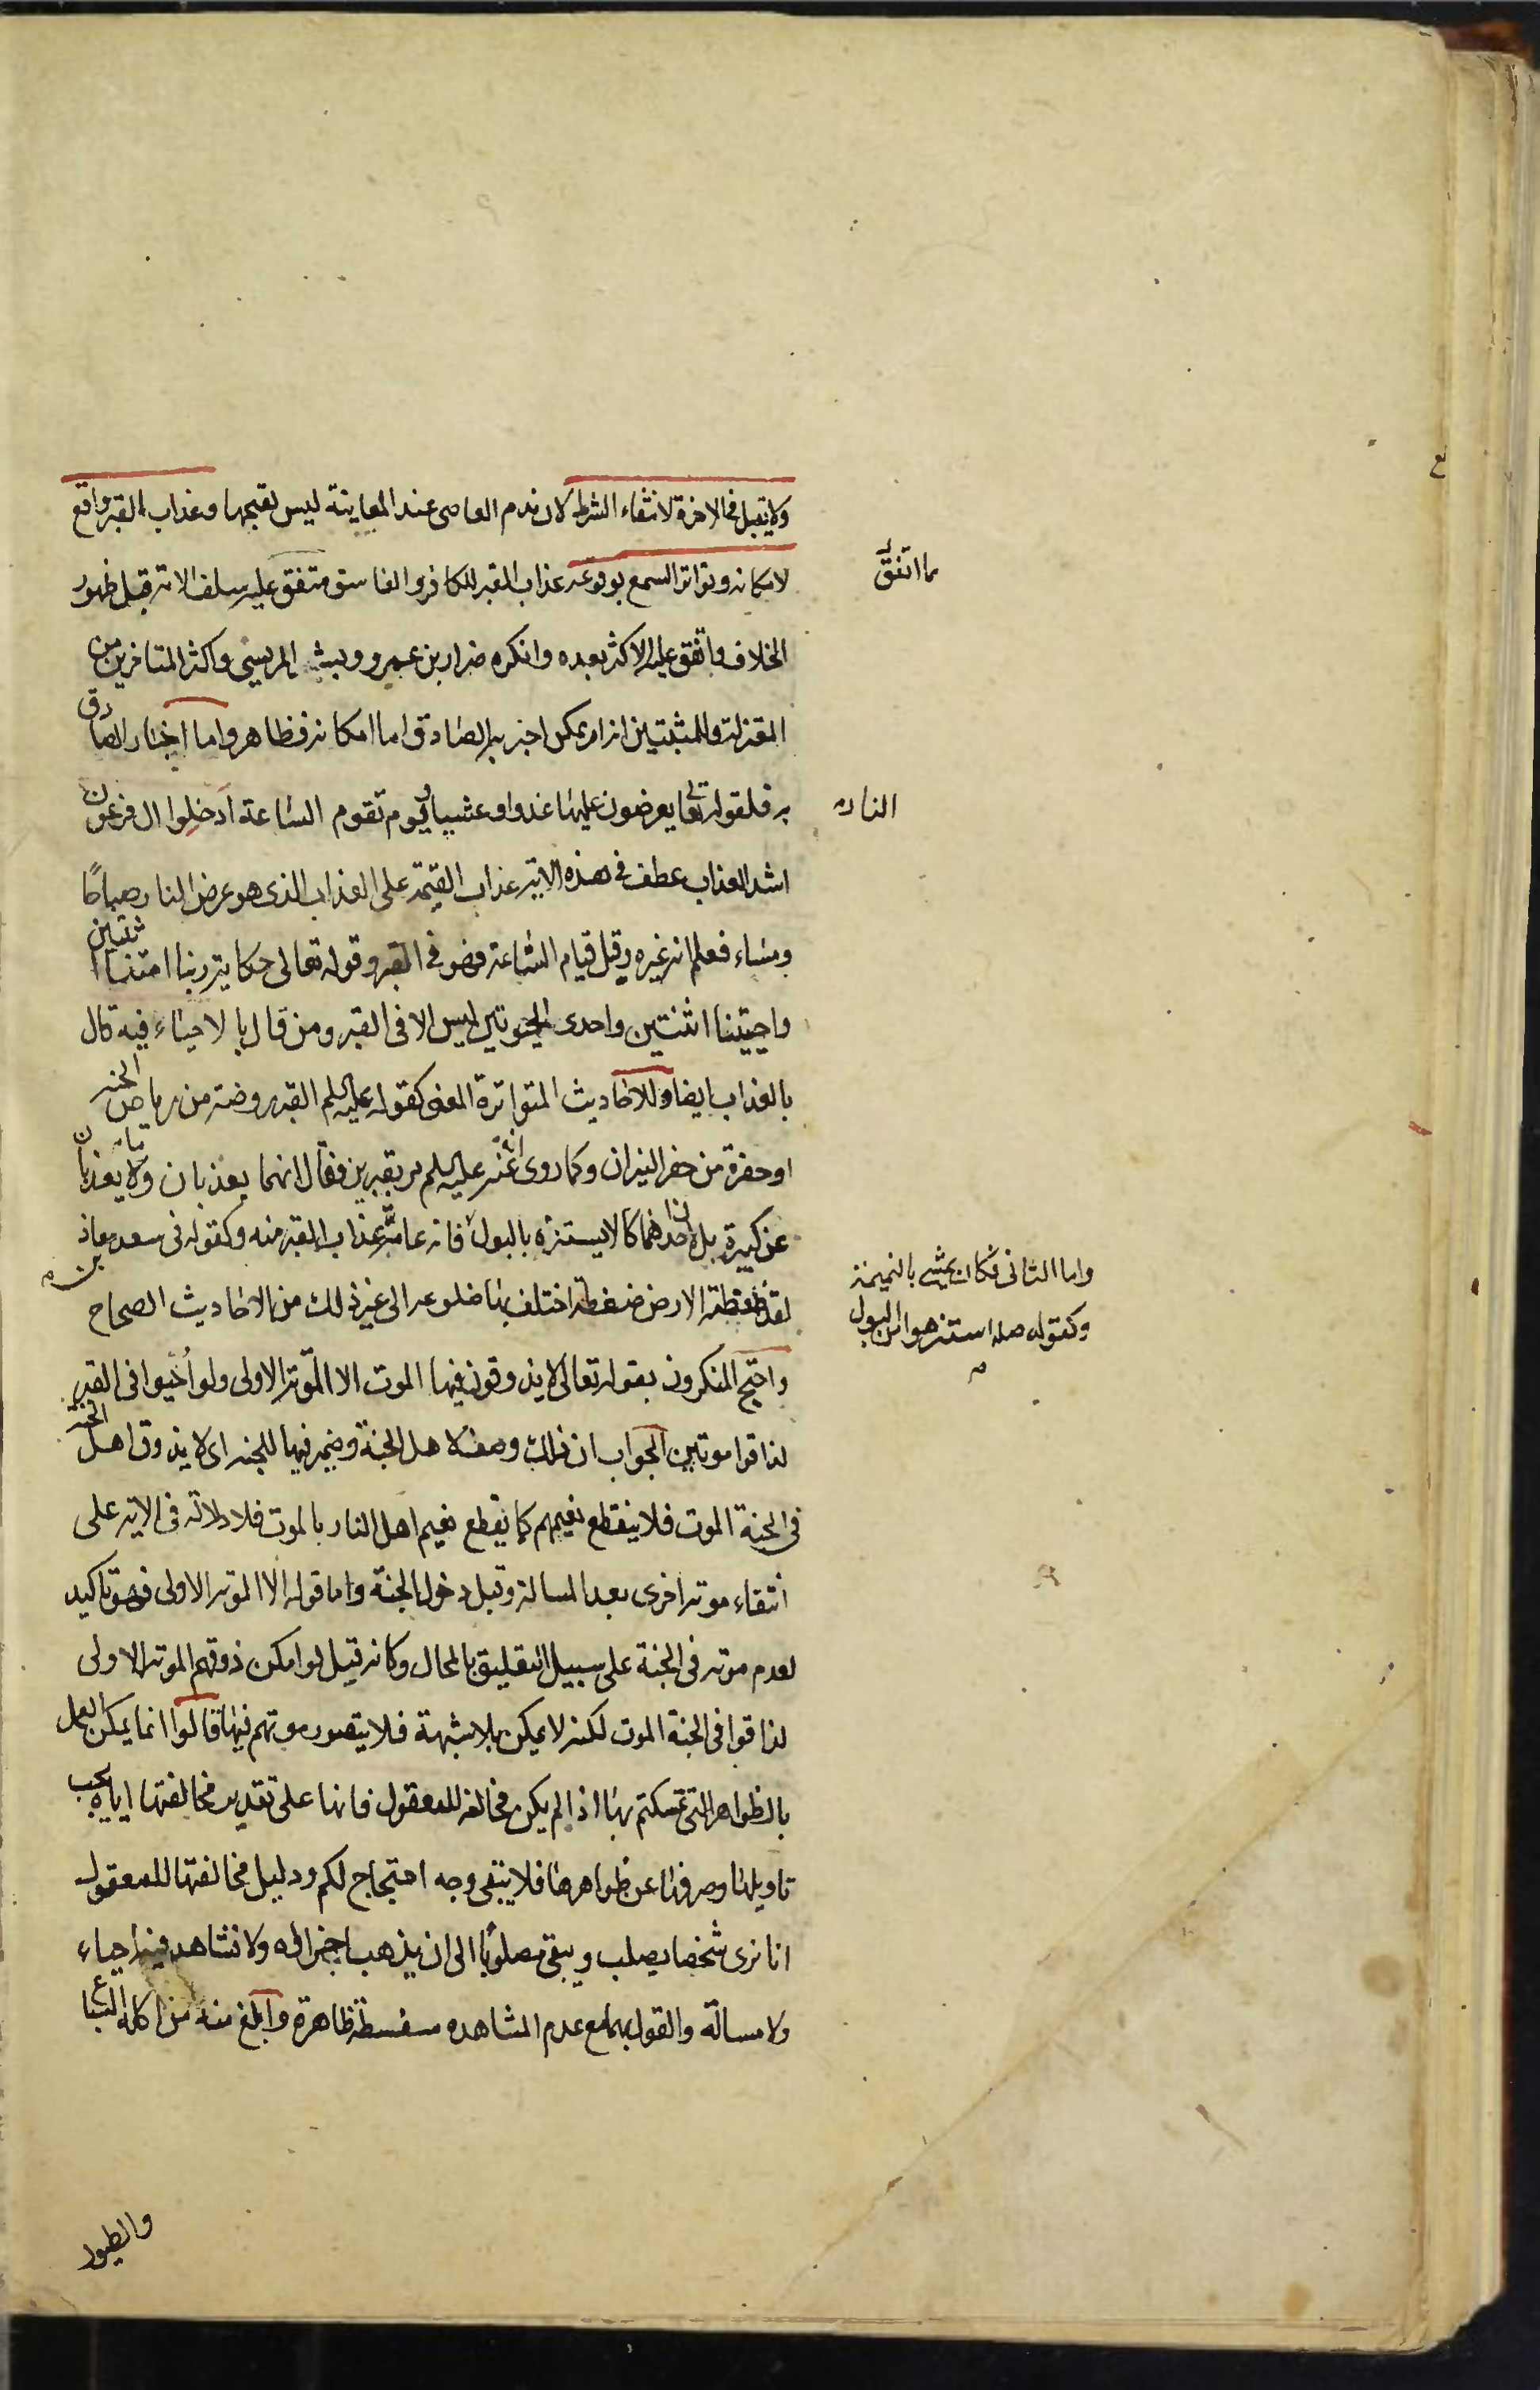 ولا تقبل فى الاخرة لانتفاء الشرط لان ندم العاصى عند المعاينة ليس لقبحها وعذاب القبر واقع
لامكانه وتواتر السمع بوقوعه عذاب القبر للكافر والفاسق متفق عليه سلف الامة قبل ظهور
الخلاف واتفق عليه الاكثر بعده وانكره ضرار بن عمرو وبشر المريسى واكثر المتاخرين من
المعتزلة وللمثبتين انه امر ممكن اخبر به الصادق اما امكانه فظاهر واما اخبار الصادق
به فلقوله تعا يعرضون عليها غدوا وعشيا ويوم تقوم الساعة ادخلوا ال فرعون
اشد العذاب عطف فى هذه الاية عذاب القيمة على العذاب الذى هو عرض النار صباحًا
ومساء فعلم انه غيره وقبل قيام الساعة فهو فى القبر وقوله تعالى حكاية ربنا امتنا اثنتين
واحييتنا اثنتين واحدى الحيوتين ليس الا فى القبر ومن قال بالاحياء فيه قال
بالعذاب ايضا وللاحاديث المتواترة المعنى كقوله عليه السلم القبر روضة من رياض الجنة
او حفرة من حفر النيران وكما روى انه عليه السلم مر بقبرين فقال انهما يعذبان وما يعذبان
عن كبيرة بل لان احدهما كان لا يستنزه بالبول فانه عامة عذاب القبر منه وكقوله فى سعد بن معاذ
لقد ضغطته الارض ضغطة اختلف بها ضلوعه الى غير ذلك من الاحاديث الصحاح
واحتج المنكرون بقوله تعالى لا يذوقون فيها الموت الا الموتة الاولى ولو أُحيوا فى القبر
لذاقوا موتين الجواب ان ذلك وصف لاهل الجنة وضمير فيها للجنة اى لا يذوق اهل الجنة
فى الجنة الموت فلا ينقطع نعيمهم كما ينقطع نعيم اهل النار بالموت فلا دلالة فى الاية على
انتفاء موتة اخرى بعد المسالة وقبل دخول الجنة واما قوله الا الموتة الاولى فهو تاكيد
لعدم موته فى الجنة على سبيل التعليق بالمحال وكانه قيل لو امكن ذوقهم الموتة الاولى
لذاقوا فى الجنة الموت لكنه لا يمكن بلا شبهة فلا يتصور موتهم فيها قالوا انما يمكن العمل
بالظواهر التى تمسكتم بها اذا لم يكن مخالفة للمعقول فانها على تقدير مخالفتها اياه يجب
تاويلها وصرفها عن ظواهرها فلا يبقى وجه احتجاج لكم ودليل مخالفتها للمعقول
انا نرى شخصا يصلب ويبقى مصلوبًا الى ان يذهب اجزاؤه ولا نشاهد فيه احياء
ولا مسالة والقول بهما مع عدم المشاهده سفسطة ظاهرة وابلغ منه من اكله السباع
مما اتفق
النار
واما الثانى فكان يمشى بالنميمة
وكقوله صلم استنزهوا من البول
والطيور